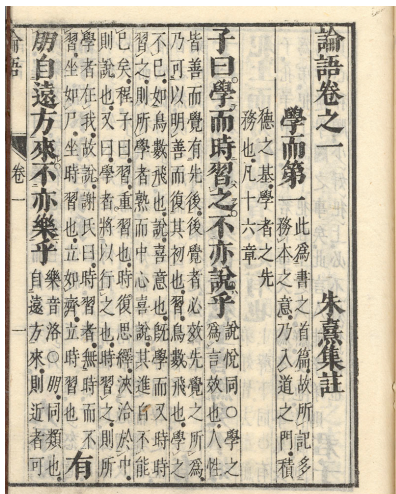 論語卷之一 朱熹集註
學而第一
此爲書之首篇故所記多
務本之意乃入道之門積
德之基學者之先
務也凡十六章
子曰學而時習之不亦說乎
說悅同○學之
爲言效也人性
皆善而覺有先後後覺者必效先覺之所爲
乃可以明善而復其初也習鳥數飛也學之
不已如鳥數飛也說喜意也旣學而又時時
習之則所學者熟而中心喜說其進自不能
已矣程子曰習重習也時復思繹浹洽於中
則說也又曰學者將以行之也時習之則所
學者在我故說謝氏曰時習者無時而不
習坐如尸坐時習也立如齊立時習也
有
朋自遠方來不亦樂乎
樂音洛○朋同類也
自遠方來則近者可
論語 卷一 一